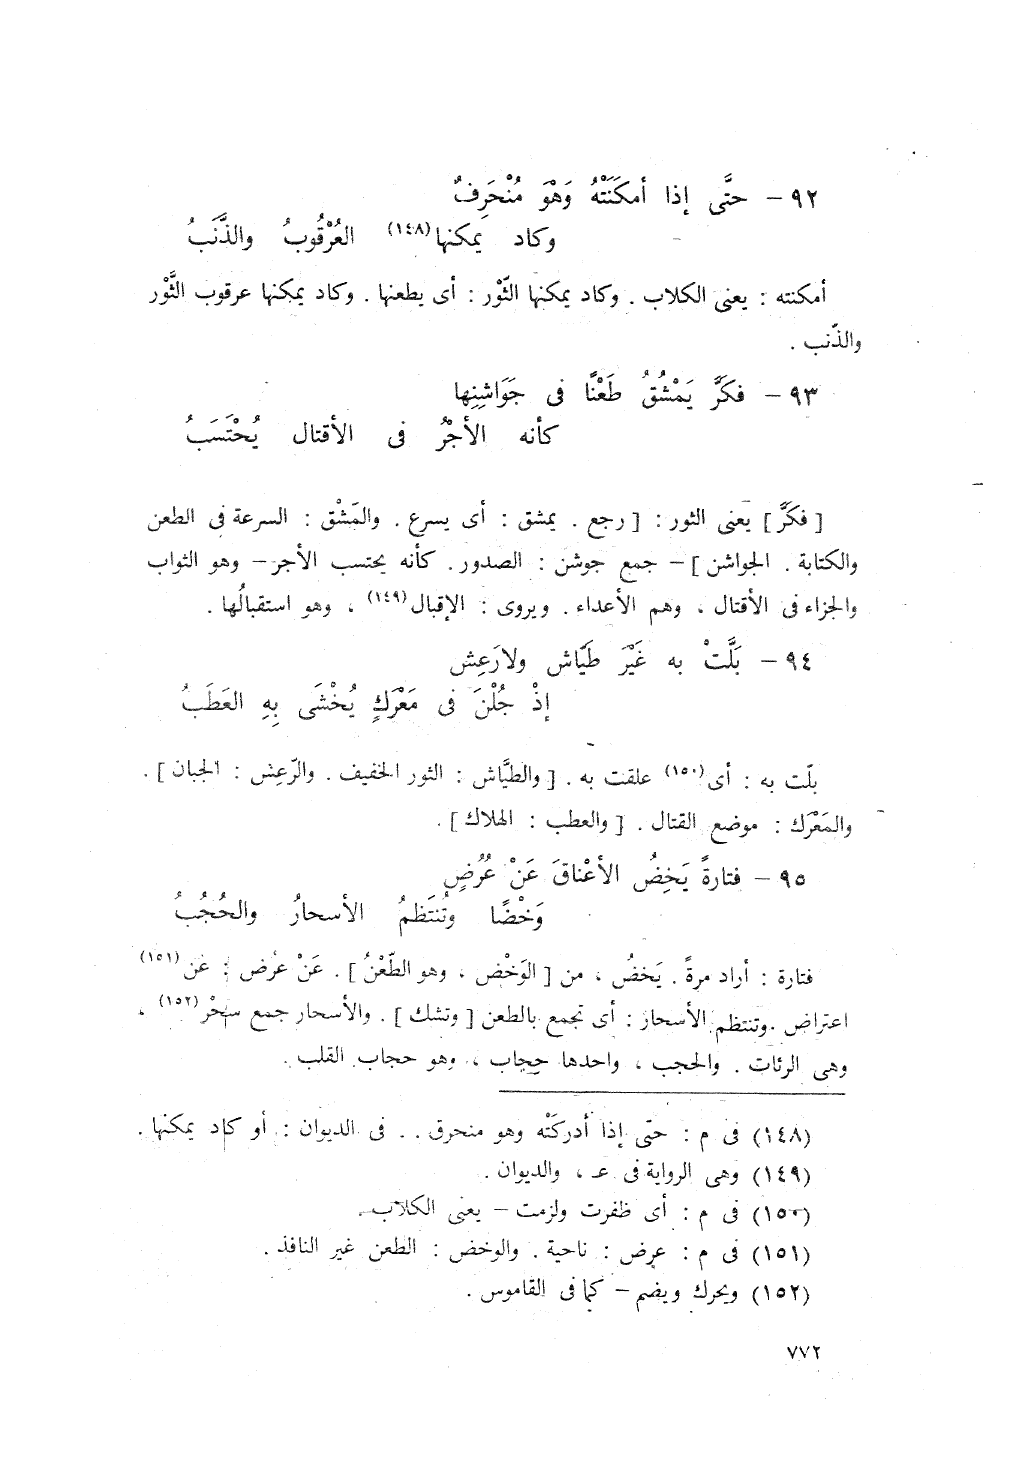 ٩٢ – حتَّى إذا أمكَنَتْهُ وَهْوَ مُنْحَرِفٌ
وكاد يمكنها(١٤٨) العُرْقُوبُ والذَّنَبُ
أمكنته : يعنى الكلاب . وكاد يمكنها الثّوْر : أى يطعنها . وكاد يمكنها عرقوب الثَّوْر
والذّنب .
٩٣ – فكَرَّ يَمْشُقُ طَعْنًا فى جَوَاشِنِها
كأنه الأجْرُ فى الأقتال يُحْتَسَبُ
[ فكَرَّ ] يعنى الثور : [ رجع . يمشق : أى يسرع . والمَشْق : السرعة فى الطعن
والكتابة . الجواشن ] – جمع جوشن : الصدور . كأنه يحتسب الأجر – وهو الثواب
والجزاء فى الأقتال ، وهم الأعداء . ويروى : الإقبال(١٤٩) ، وهو استقبالُها .
٩٤ – بَلَّتْ به غَيْرَ طَيّاش ولا رَعِش
إذْ جُلْنَ فى مَعْرَكٍ يُخْشَى بِهِ العَطَبُ
بلّت به : أى(١٥٠) علقت به . [ والطيَّاش : الثور الخفيف . والرّعِش : الجبان ] .
والمَعْرَك : موضع القتال . [ والعطب : الهلاك ] .
٩٥ – فتارةً يَخِضُ الأعْناقَ عَنْ عُرُضٍ
وَخْضًا وتُنتَظمُ الأسحارُ والحُجُبُ
فتارة : أراد مرةً . يَخضُ ، من [ الوَخْض ، وهو الطّعْنُ ] . عَنْ عرُض : عَن(١٥١)
اعتراض . وتنتظم الأسحار : أى تجمع بالطعن [ وتشك ] . والأسحار جمع سحْر(١٥٢) ،
وهى الرئات . والحجب ، واحدها حجاب ، وهو حجاب القلب .
(١٤٨) فى م : حتى إذا أدركَتْه وهو منحرق . . فى الديوان : أو كاد يمكنها .
(١٤٩) وهى الرواية فى عـ ، والديوان .
(١٥٠) فى م : أى ظفرت ولزمت – يعنى الكلاب .
(١٥١) فى م : عرض : ناحية . والوخض : الطعن غير النافذ .
(١٥٢) ويحرك ويضم – كما فى القاموس .
٧٧٢